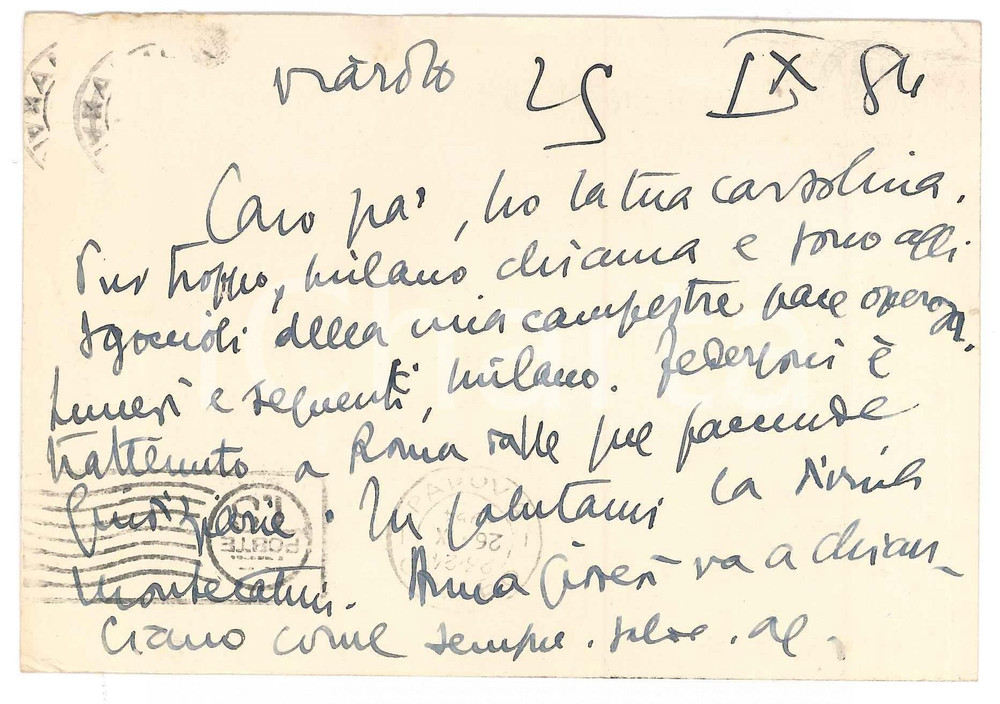 Viarolo 25 IX 84
Caro pa', ho la tua cartolina.
Purtroppo, Milano chiama e sono agli
sgoccioli della mia campestre pace operosa.
Lunedì e seguenti, Milano. Federzoni è
trattenuto a Roma dalle sue faccende
giudiziarie. Tu salutami la
Montecatini. Anna giovedì va a Chian-
ciano come sempre. Salve. Al.
PADOVA
26 IX